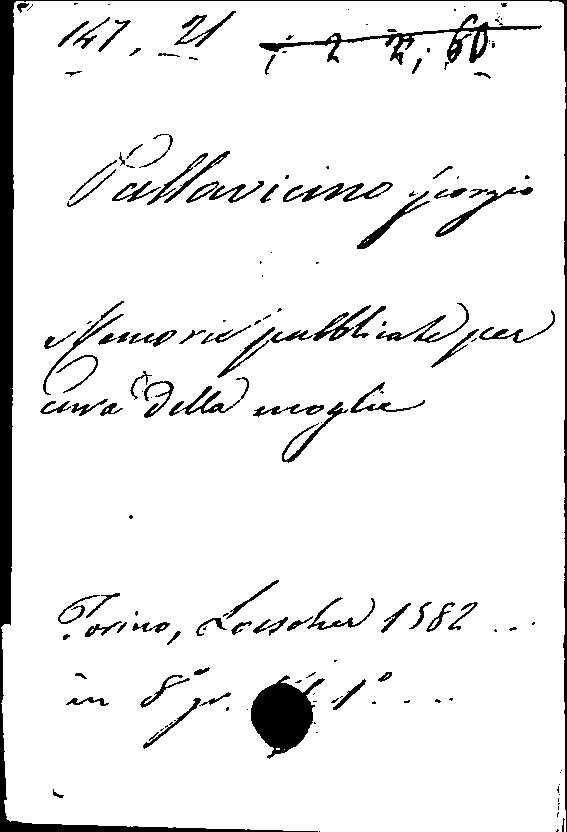 147, 21
Pallavicino Giorgio
Memorie pubblicate per
cura della moglie
Torino, Loescher 1882 ...
in 8° gr. 1°. ...